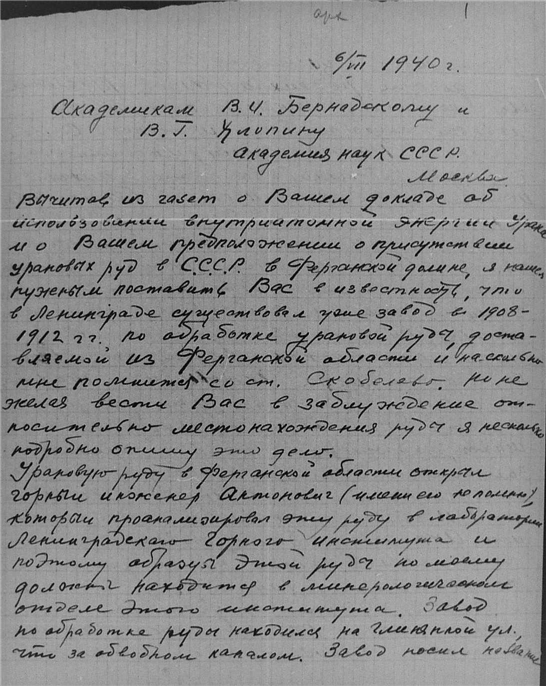 арх 1
6/VII 1940 г.
Академикам В.И. Вернадскому и
В.Г. Хлопину
Академия наук СССР.
Москва.
Вычитав из газет о Вашем докладе об
использовании внутриатомной энергии Урана
и о Вашем предположении о присутствии
урановых руд в С.С.С.Р. в Ферганской долине, я нашел
нужным поставить Вас в известность, что
в Ленинграде существовал уже завод в 1908-
1912 г г. по обработке урановой руды, доста-
вляемой из Ферганской области и насколько
мне помнится со ст. Скобелево. Но не
желая вести Вас в заблуждение от-
носительно местонахождения руды я несколько
подробно опишу это дело.
Урановую руду в Ферганской области открыл
горный инженер Антонович (имени его не помню),
который проанализировал эту руду в лаборатории
Ленинградского Горного института и
поэтому образцы этой руды по моему
должны находится в минерологическом
отделе этого института. Завод
по обработке руды находился на ул.,
что за обводным каналом. Завод носил название